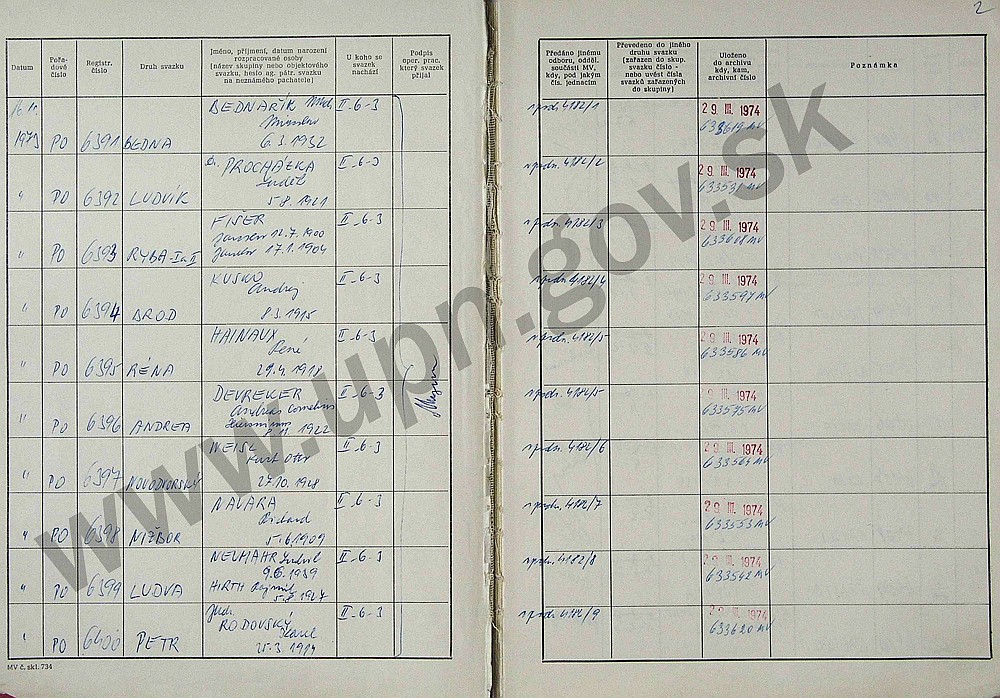 2
Datum
Pořadové číslo
Registr. číslo
Druh svazku
Jméno, příjmení, datum narození rozpracované osoby (název skupiny nebo objektového svazku, heslo ag. pátr. svazku na neznámého pachatele)
U koho se svazek nachází
Podpis oper. prac. který svazek přijal
Předáno jinému odboru, odděl. součásti MV, kdy, pod jakým čís. jednacím
Převedeno do jiného druhu svazku (zařazen do skup. svazku číslo - nebo uvést čísla svazků zařazených do skupiny)
Uloženo do archivu kdy, kam, archivní číslo
Poznámka
16.11. 1973 PO 6391 BEDNA BEDNARÍK
6.3.1932 II-6-3 4182/1 29. III. 1974 MV
" PO 6392 LUDVÍK PROCHÁZKA
5.8.1921 II-6-3 4182/2 29. III. 1974 633531 MV
" PO 6393 RYBA-I a II FISER
12.7.1900
17.1.1904 II-6-3 4182/3 29. III. 1974 633608 MV
" PO 6394 BROD KUSKO
Andrej
8.3.1915 II-6-3 4182/4 29. III. 1974 633597 MV
" PO 6395 RÉNA HAINAUX
René
29.4.1918 II-6-3 4182/5 29. III. 1974 633586 MV
" PO 6396 ANDREA DEVREKER
Andreas Cornelius
8.11.1922 II-6-3 4182/5 29. III. 1974 633575 MV
" PO 6397 NOVODVORSKÝ WEISL
Kurt Otto
27.10.1928 II-6-3 4182/6 29. III. 1974 633564 MV
" PO 6398 NIŽBOR NAVARA
Richard
5.6.1909 II-6-3 4182/7 29. III. 1974 633553 MV
" PO 6399 LUDVA NEUMAHR
9.6.1939
HIRTH
II-6-3 4182/8 29. III. 1974 633542 MV
" PO 6400 PETR Judr. RODOVSKÝ
Karel
25.3.1914 II-6-3 4182/9 29. III. 1974 633620 MV
MV č. skl. 734
www.upn.gov.sk